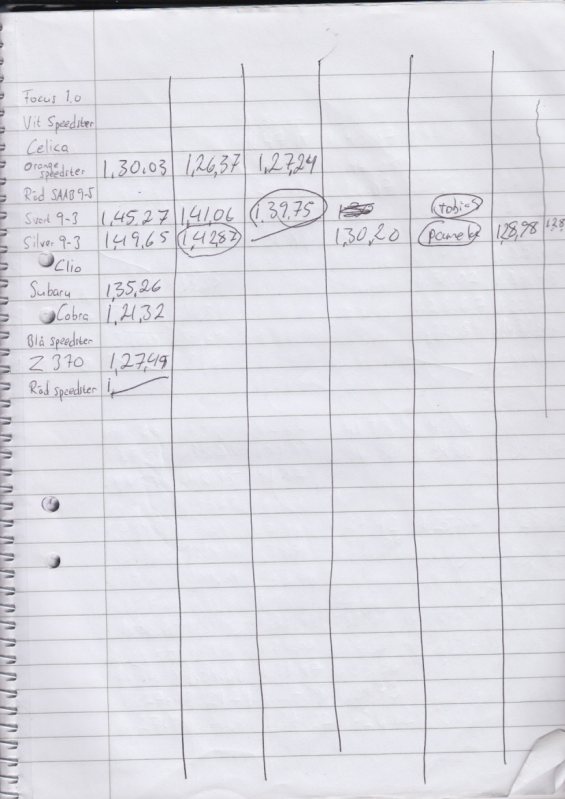 Focus 1.0
Vit Speedster
Celica
Orange speedster 1,30,03 1,26,37 1,27,24
Röd SAAB 9-5
Svart 9-3 1,45,27 1,41,06 1,39,75 tobias
Silver 9-3 1,49,65 1,42,87 1,30,20 1,28,98 1,28
Clio
Subaru 1,35,26
Cobra 1,21,32
Blå speedster
Z 370 1,27,49
Röd speedster 1,